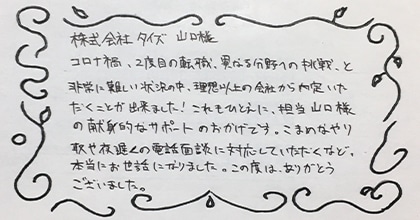 株式会社タイズ 山口様
コロナ禍、2度目の転職、異なる分野への挑戦、と
非常に難しい状況の中、理想以上の会社から内定いた
だくことが出来ました！これもひとえに、担当山口様
の献身的なサポートのおかげです。こまめなやり
取や夜遅くの電話面談に対応していただくなど、
本当にお世話になりました。この度は、ありがとう
ございました。